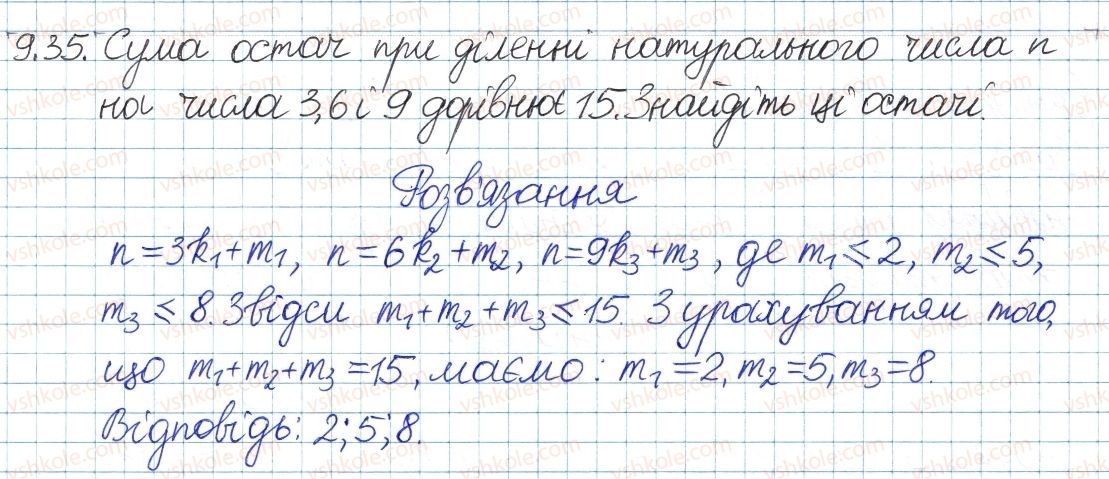 9.35. Сума остач при діленні натурального числа n
на числа 3,6 і 9 дорівнює 15. Знайдіть ці остачі.
Розв'язання
n=3k₁+m₁, n=6k₂+m₂, n=9k₃+m₃, де m₁⩽2, m₂⩽5,
m₃⩽8. Звідси m₁+m₂+m₃⩽15. З урахуванням того,
що m₁+m₂+m₃=15, маємо: m₁=2, m₂=5, m₃=8.
Відповідь: 2; 5; 8.